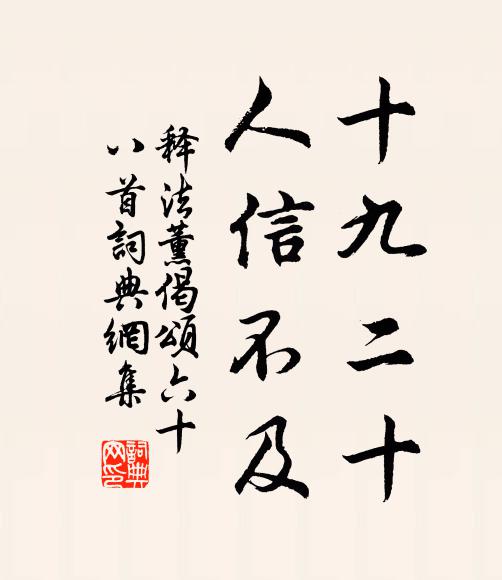 十九二十
人信不及
释法薰偈頌六十
八首詞典網集
詞典網印